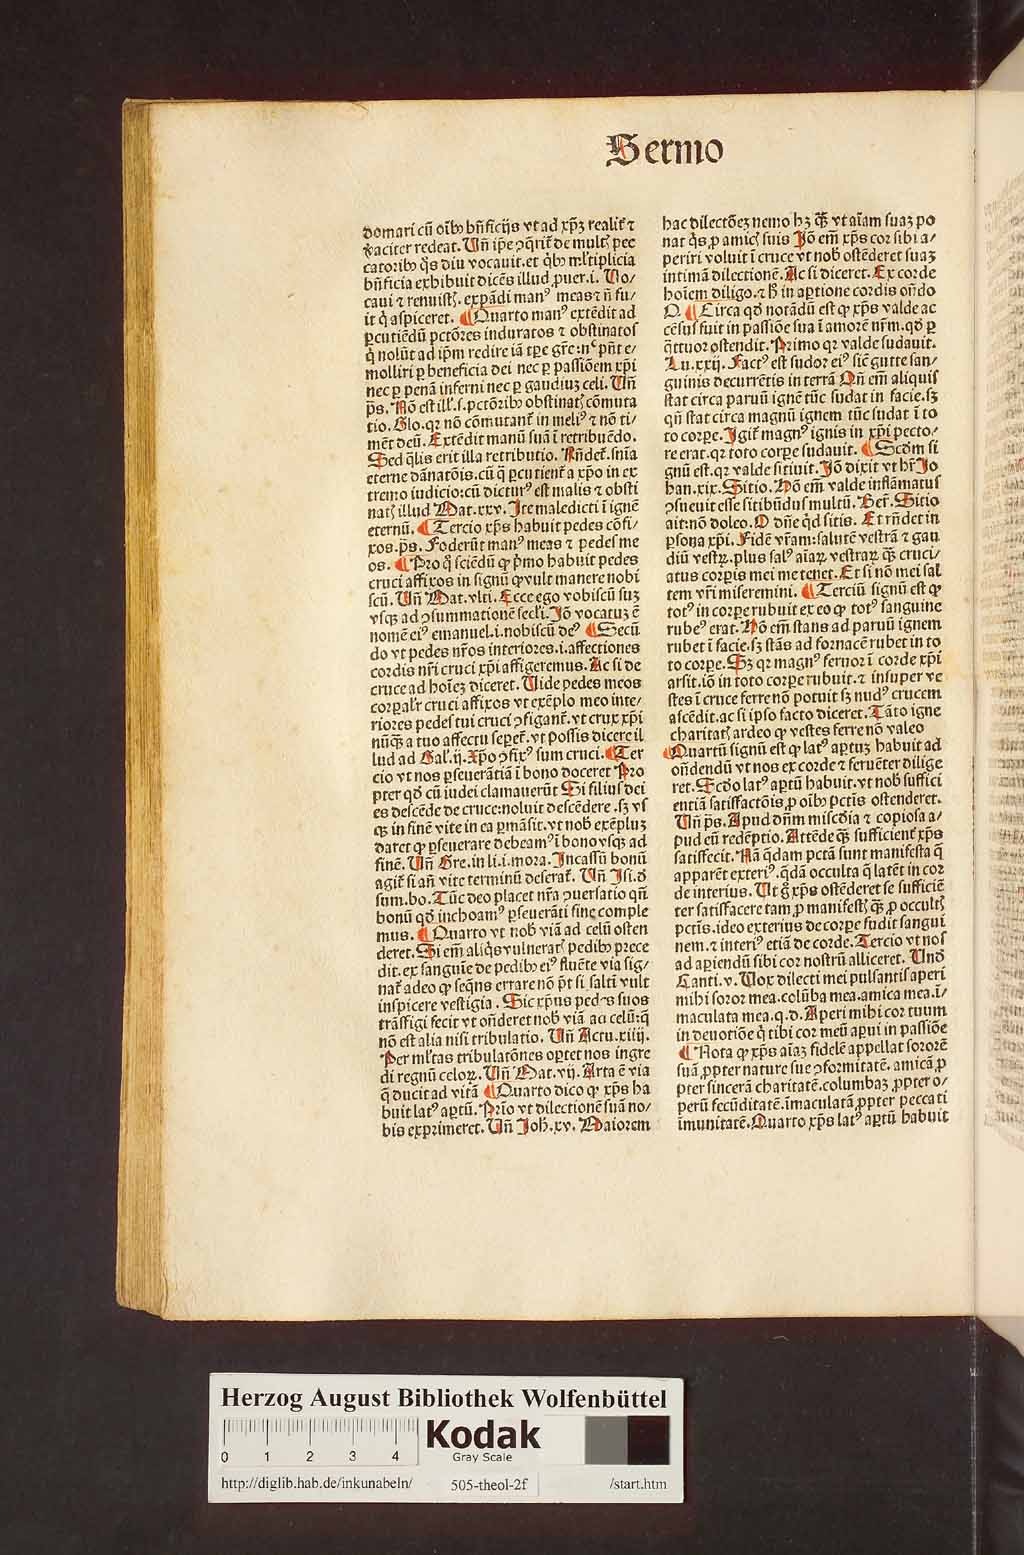 Sermo
domari cū oībꝰ bñficijs vt ad xp̄ꝫ realit̄ ⁊
v̓aciter redeat. Uñ ip̄e ꝯq̄rit̄ de mult̓ pec
catoribꝰ q̄s diu vocauit. et q̄bꝰ ml̓tiplicia
bñficia exhibuit dicēs illud ꝓuer. i. Uo/
caui ⁊ renuist̓. expādi manꝰ meas ⁊ ñ fu/
it q̓ aspiceret. ¶ Quarto manꝰ extēdit ad
ꝑcutiēdū pctōres induratos ⁊ obstinatos
q̓ nolūt ad ip̄m redire iā tꝑe gr̄e: n̄c pn̄t e/
molliri ꝑ beneficia dei nec ꝑ passiōem xp̄i
nec ꝑ penā inferni nec ꝑ gaudiuꝫ celi. Uñ
p̄s. Nō est ill̓. s. pctōribꝰ obstinat̓ cōmuta
tio. Glo. qꝛ nō cōmutant̄ in meliꝰ ⁊ nō ti/
mēt deū. Extēdit manū suā ī retribuēdo.
Sed q̄lis erit illa retributio. Rñdet̄. sñia
eterne dānatōis. cū q̄ ꝑcutient̄ a xp̄o in ex
tremo iudicio: cū dicturꝰ est malis ⁊ obsti
nat̓ illud Mat. xxv. Ite maledicti ī ignē
eternū. ¶ Tercio xp̄s habuit pedes cōfi/
xos. p̄s. Foderūt manꝰ meas ⁊ pedes me
os. ¶ Pro q̄ sciēdū ꝙ p̓mo habuit pedes
cruci affixos in signū ꝙ vult manere nobi
scū. Uñ Mat. vlti. Ecce ego vobiscū suꝫ
vsqꝫ ad ꝯsummationē secl̓i. Iō vocatuꝫ ē
nomē eiꝰ emanuel. i. nobiscū deꝰ ¶ Secū
do vt pedes nr̄os interiores. i. affectiones
cordis nr̄i cruci xp̄i affigeremus. Ac si de
cruce ad hoīeꝫ diceret. Uide pedes meos
corꝑal̓r cruci affixos vt exēplo meo inte/
riores pedes tui cruci ꝯfigant̄. vt crux xp̄i
nūqꝫ̄ a tuo affectu seꝑet̄. vt possis dicere il
lud ad Gal. ij. Xp̄o ꝯfixꝰ sum cruci. ¶ Ter
cio vt nos ꝑseuerātiā ī bono doceret Pro
pter qd̓ cū iudei clamauerūt Si filius dei
es descēde de cruce: noluit descēdere. sꝫ vs
qꝫ in finē vite in ea ꝑmāsit. vt nob̓ exēpluꝫ
daret ꝙ ꝑseuerare debeamꝰ ī bono vsqꝫ ad
finē. Uñ Gre. in li. i. mora. Incassū bonū
agit̄ si añ vite terminū deserat̄. Uñ Isi. d̓
sum. bo. Tūc deo placet nr̄a ꝯuersatio qñ
bonū qd̓ inchoamꝰ ꝑseuerāti fine comple
mus. ¶ Quarto vt nob̓ viā ad celū osten
deret. Si em̄ aliq̄s vulnerat̓ pedibꝰ prece
dit. ex sanguīe de pedibꝰ eiꝰ fluēte via sig/
nat̄ adeo ꝙ seq̄ns errare nō pt̄ si salti vult
inspicere vestigia. Sic xp̄us pedes suos
trāsfigi fecit vt oñderet nob̓ viā ad celū: q̄
nō est alia nisi tribulatio. Uñ Actu. xiiij.
Per ml̓tas tribulatōnes oꝑtet nos ingre
di regnū celoꝝ. Uñ Mat. vij. Arta ē via
q̄ ducit ad vitā ¶ Quarto dico ꝙ xp̄s ha
buit latꝰ aꝑtū. Prīo vt dilectionē suā no/
bis exprimeret. Uñ Joh. xv. Maiorem
hac dilectōeꝫ nemo hꝫ qꝫ̄ vt aīam suaꝫ po
nat q̄s ꝓ amic̓ suis Iō em̄ xp̄s cor sibi a/
periri voluit ī cruce vt nob̓ ostēderet suaꝫ
intimā dilectionē. Ac si diceret. Ex corde
hoīem diligo. ⁊ h̓ in aꝑtione cordis oñdo
O. ¶ Circa qd̓ notādū est ꝙ xp̄s valde ac
cēsus fuit in passiōe sua ī amorē nr̄m. qd̓ ꝑ
q̄ttuor ostendit. Primo qꝛ valde sudauit.
Lu. xxij. Factꝰ est sudor eiꝰ sic̄ gutte san/
guinis decurrētis in terrā Qñ em̄ aliquis
stat circa paruū ignē tūc sudat in facie. sꝫ
qñ stat circa magnū ignem tūc sudat ī to
to corꝑe. Igit̄ magnꝰ ignis in xp̄i pecto/
re erat. qꝛ toto corꝑe sudauit. ¶ Scd̓m si
gnū est. qꝛ valde sitiuit. Iō dixit vt hr̄ Jo
han. xix. Sitio. Hō em̄ valde inflāmatus
ꝯsueuit esse sitibūdus multū. Ber̄. Sitio
ait: nō doleo. O dñe q̓d sitis. Et rñdet in
ꝑsona xp̄i. Fidē vr̄am: salutē vestrā ⁊ gau
diū vestꝝ. plus salꝰ aīaꝝ vestraꝝ qꝫ̄ cruci/
atus corꝑis mei me tenet. Et si nō mei sal
tem vr̄i miseremini. ¶ Terciū signū est ꝙ
totꝰ in corꝑe rubuit ex eo ꝙ totꝰ sanguine
rubeꝰ erat. Hō em̄ stans ad paruū ignem
rubet ī facie. sꝫ stās ad fornacē rubet in to
to corꝑe. Sꝫ qꝛ magnꝰ feruor ī corde xp̄i
arsit. iō in toto corꝑe rubuit. ⁊ insuper ve
stes ī cruce ferre nō potuit sꝫ nudꝰ crucem
ascēdit. ac si ipso facto diceret. Tāto igne
charitat̓ ardeo ꝙ vestes ferre nō valeo
¶ Quartū signū est ꝙ latꝰ aꝑtuꝫ habuit ad
oñdendū vt nos ex corde ⁊ feruēter dilige
ret. Scd̓o latꝰ aꝑtū habuit. vt nob̓ suffici
entiā satisfactōis ꝓ oībꝰ pctis ostenderet.
Uñ p̄s. Apud dñm misc̄dia ⁊ copiosa a/
pud eū redēptio. Attēde qꝫ̄ sufficient̄ xp̄s
satisfecit. Nā q̄dam pctā sunt manifesta q̄
apparēt exteriꝰ. q̄dā occulta q̄ latēt in cor
de interius. Ut g̊ xp̄s ostēderet se sufficiē
ter satisfacere tam ꝓ manifest̓ qꝫ̄ ꝓ occult̓
pctis. ideo exterius de corꝑe fudit sangui
nem. ⁊ interiꝰ etiā de corde. Tercio vt nos
ad aꝑiendū sibi cor nostrū alliceret. Und̓
Canti. v. Uox dilecti mei pulsantis aperi
mihi soror mea. colūba mea. amica mea. ī/
maculata mea. q. d. Aperi mihi cor tuum
in deuotiōe q̓ tibi cor meū aꝑui in passiōe
¶ Nota ꝙ xp̄s aīaꝫ fidelē appellat sororē
suā ꝓpter nature sue ꝯformitatē. amicā ꝓ
pter sincerā charitatē. columbaꝫ ꝓpter o/
perū fecūditatē. īmaculatā ꝓpter peccati
īmunitatē. Quarto xp̄s latꝰ aꝑtū habuit
Herzog August Bibliothek Wolfenbüttel
0 1 2 3 4
Kodak
Gray Scale
http://diglib.hab.de/inkunabeln/ 505-theol-2f /start.htm